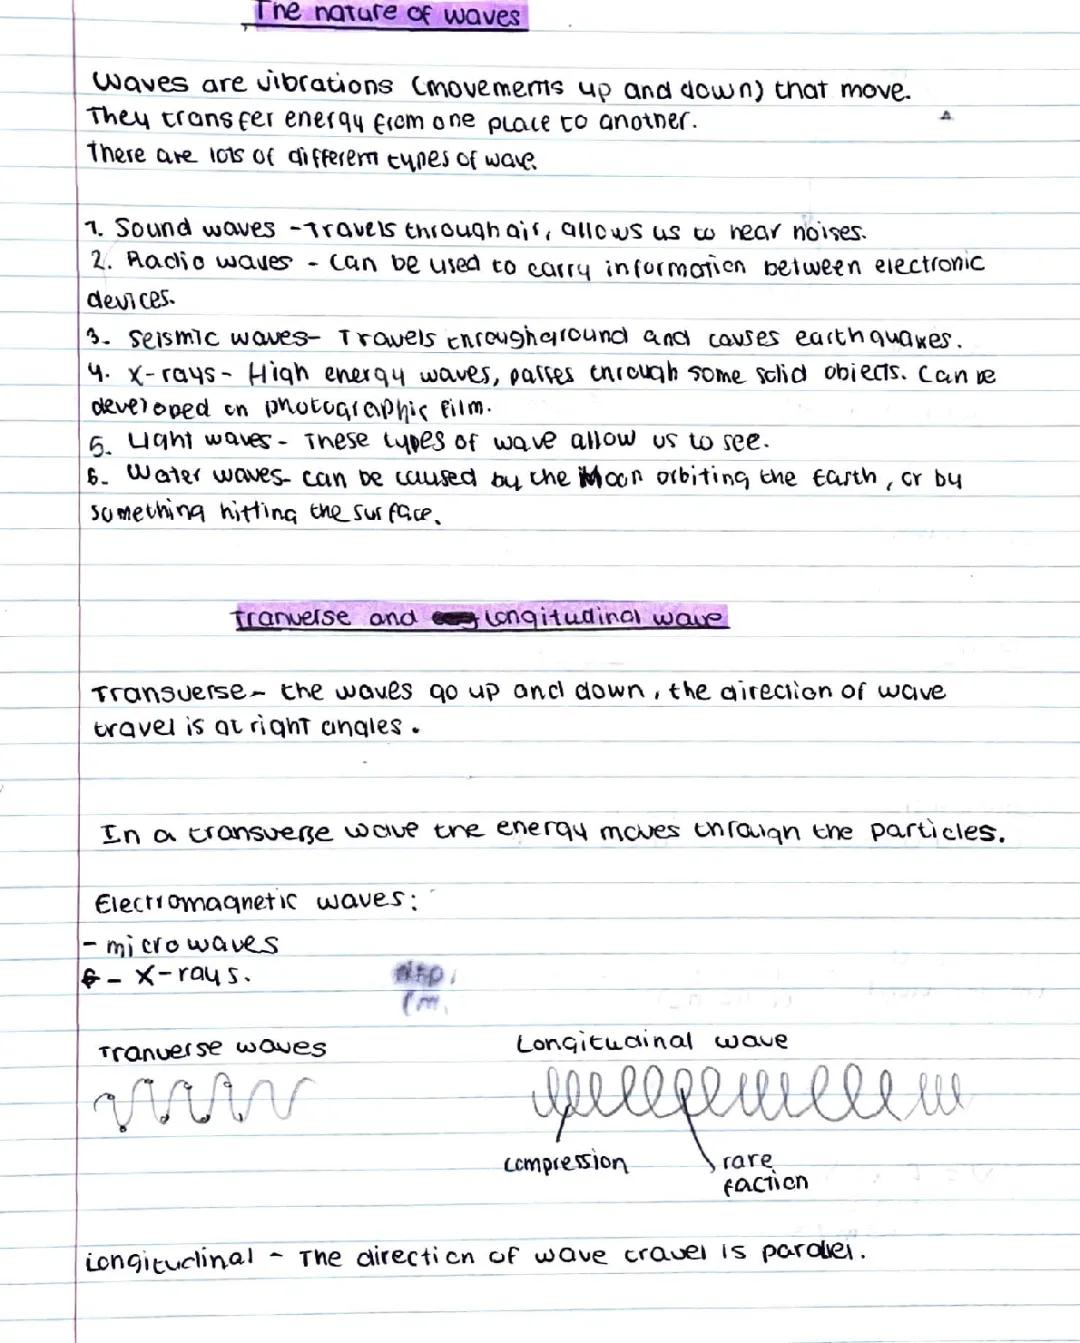 The nature of waves
Waves are vibrations (movements up and down) that move.
They transfer energy from one place to another.
There are lots of different types of wave.
1. Sound waves - Travels through air, allows us to hear noises.
2. Radio waves - Can be used to carry information between electronic
devices.
3. Seismic waves - Travels through ground and causes earthquakes.
4. X-rays - High energy waves, passes through some solid objects. Can be
developed on photographic film.
5. Light waves - These types of wave allow us to see.
6. Water waves - can be caused by the Moon orbiting the Earth, or by
something hitting the surface.
Tranverse and longitudinal wave
Transverse - the waves go up and down, the direction of wave
travel is at right angles.
In a transverse wave the energy moves through the particles.
Electromagnetic waves:
- microwaves
- X-rays.
Tranverse waves
Longitudinal wave
compression
rare
faction
Longitudinal - The direction of wave travel is paralel.